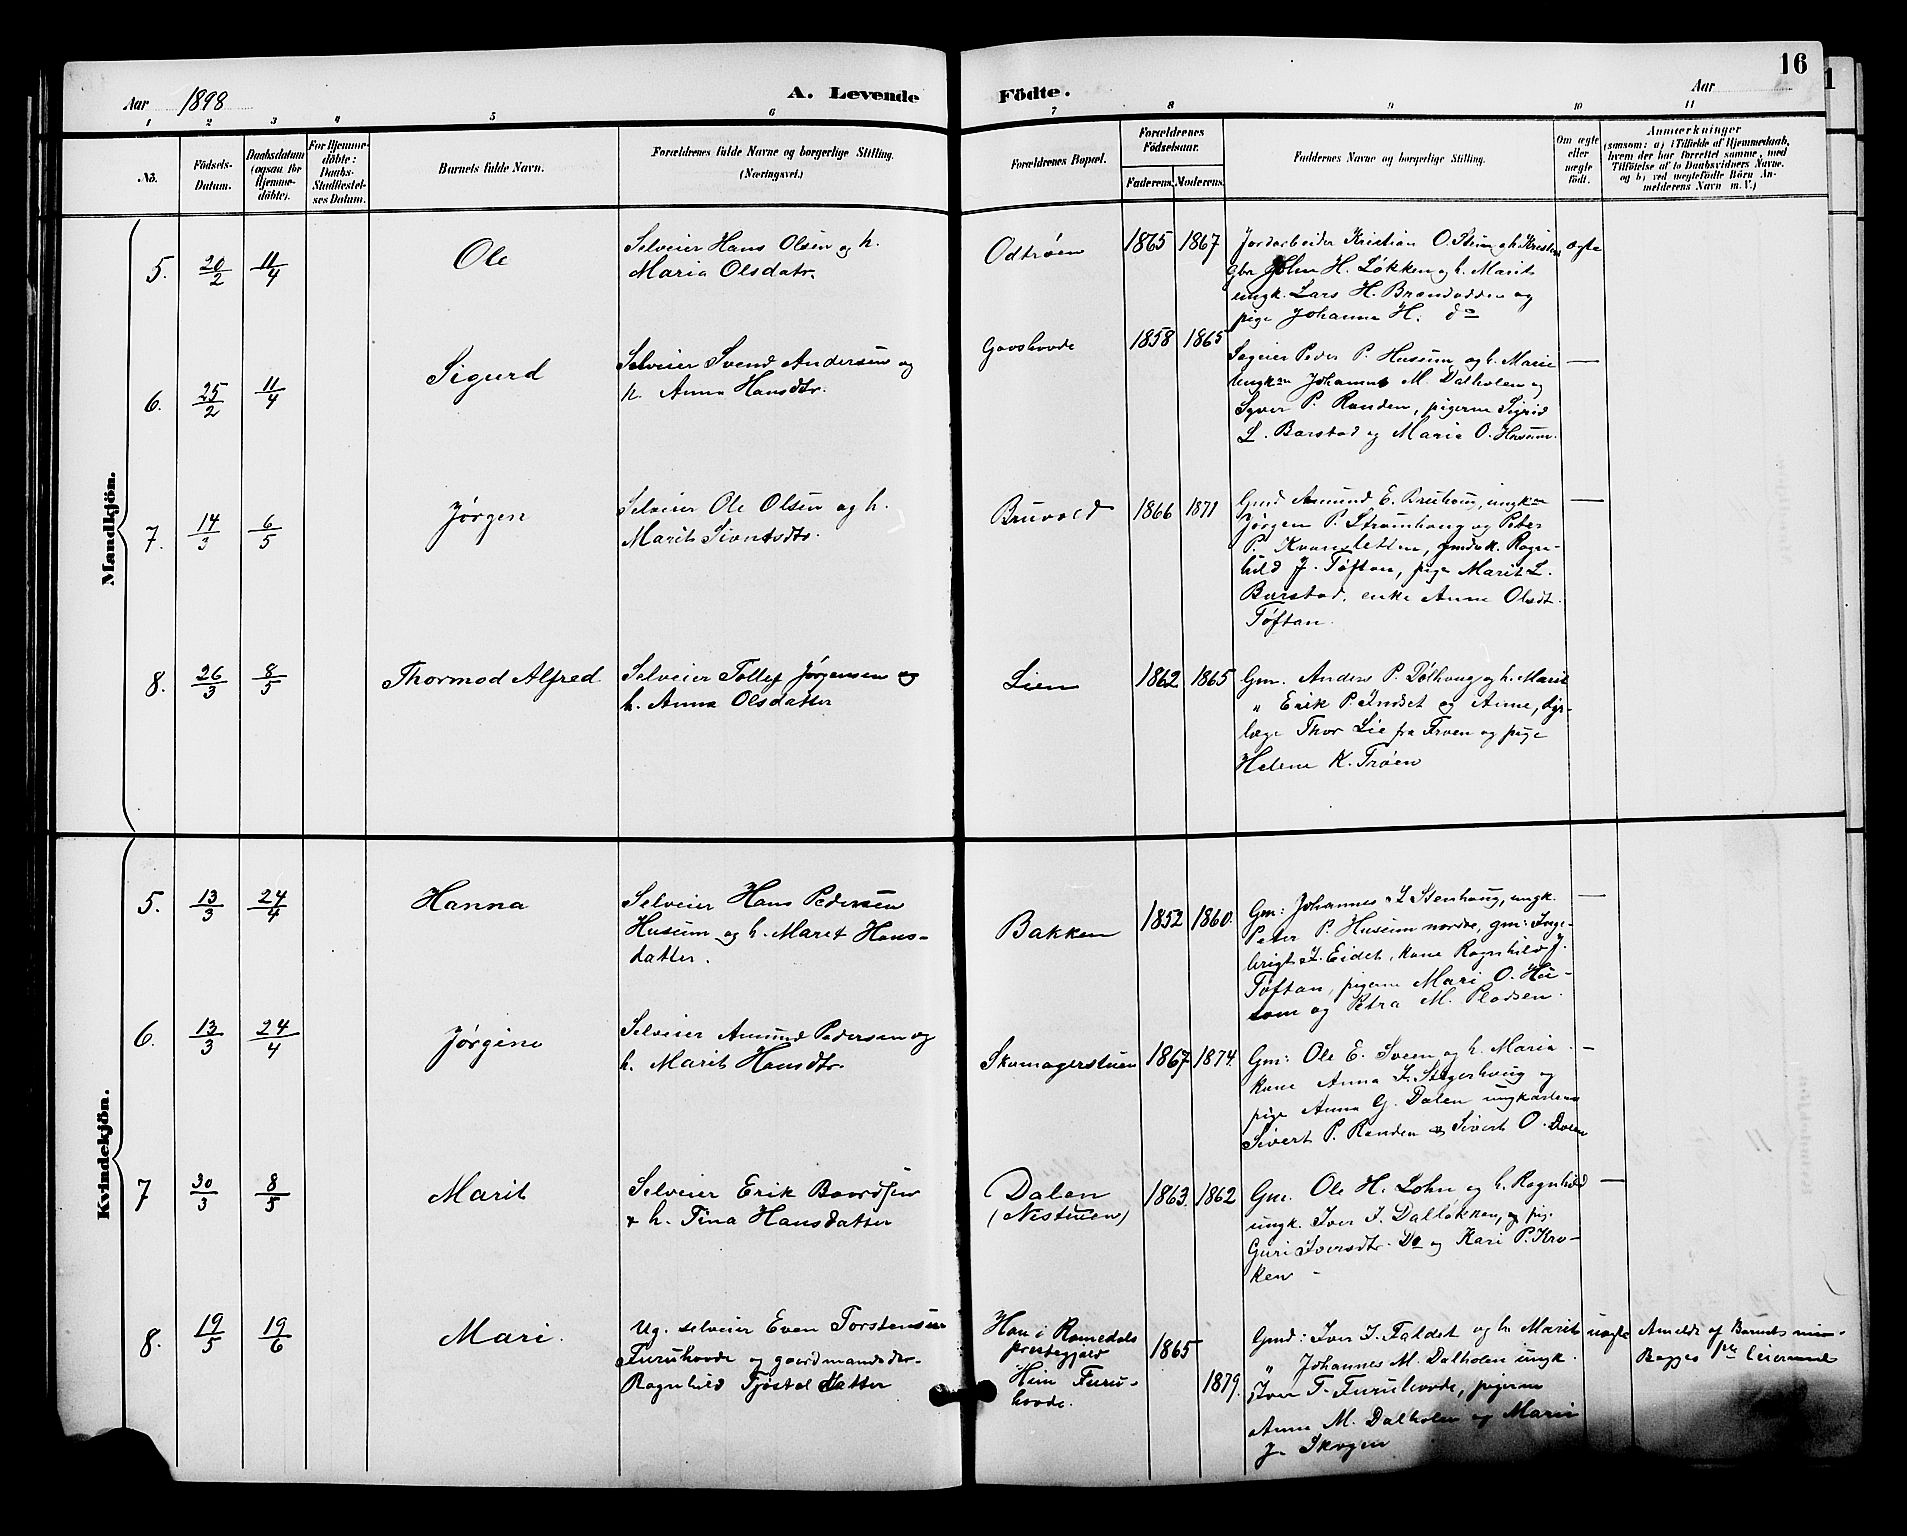 16
Aar 1898 A. Levende Födte. Aar
1 2 3 4 5 6 7 8 9 10 11
No.
Födsels-
Datum.
Daabsdatum
(ogsaa for
Hjemme-
döbte).
For Hjemme-
döbte:
Daabs-
Stadfæstel-
ses Datum.
Barnets fulde Navn.
Forældrenes fulde Navne og borgerlige Stilling.
(Næringsvei.)
Forældrenes Bopæl.
Forældrenes
Födselsaar.
Faderens. Moderens.
Faddernes Navne og borgerlige Stilling.
Om ægte
eller
uægte
födt.
Anmærkninger
(saasom: a) i Tilfælde af Hjemmedaab,
hvem der har forrettet samme, med
Tilföielse af to Daabsvidners Navne.
og b) ved uægtefödte Börn An-
melderens Navn m. V.)
Mandkjön.
5. 20/2 11/4 Ole
Selveier Hans Olsen og h.
Maria Olsdatr.
Odtrøen 1865 1867
Jordarbeider Kristian O. Steen og h. Kristine
gbr John H. Løkken og h. Marit
ungk. Lars H. Brændødden og
pige Johanne H. do
ægte
6. 25/2 11/4 Sigurd
Selveier Svend Andersen og
h. Anna Hansdtr.
Gaashovde 1858 1865
Sageier Peder P. Husum og h. Marie
ungkne Johannes M. Dalholen og
Syver P. Randen, pigerne Sigrid
L. Barstad og Maria O. Husum.
—
7. 14/3 6/5 Jørgen
Selveier Ole Olsen og h.
Marit Sivertsdtr.
Bruvold 1866 1871
Gmd Amund E. Breihoug, ungkne
Jørgen P. Strømhoug og Peter
P. Kvansletten, gmdsk. Ragn-
hild J. Tøftan, pige Marit L.
Barstad, enke Anne Olsdt.
Tøftan.
—
8. 26/3 8/5 Thormod Alfred
Selveier Tollef Jørgensen og
h. Anna Olsdatter
Lien 1862 1865
Gm. Anders P. Dølhoug og h. Marit
" Erik P. Indset og Anne, dyr-
læge Thor Lie fra Froen og pige
Helene K. Trøen
Kvindekjön.
5. 13/3 24/4 Hanna
Selveier Hans Pedersen
Husum og h. Marit Hans-
datter.
Bakken 1852 1860.
Gm: Johannes I. Stenhoug, ungk.
Peter P. Husum nordre, gm: Inge-
brigt I. Eidet, kone Ragnhild J.
Tøftan, pigerne Mari O. Hu-
som og Petra M. Pladsen.
—
6. 13/3 24/4 Jørgine
Selveier Amund Pedersen og
h. Marit Hansdtr.
Skomagerstuen 1867 1874.
Gm: Ole E. Sveen og h. Maria
kone Anna I. Stigerhoug og
pige Anna G. Dalen ungkarlene
Sivert P. Randen og Sivert O. Dalen
—
7 30/3 8/5 Marit
Selveier Erik Baardsen
& h. Tina Hansdatter
Dalen
(Nistuen)
1863. 1862
Gm. Ole H. Lohn og h. Ragnhild
ungk. Iver I. Dalløkken, og pig.
Guri Iversdtr. Do og Kari P. Kro-
ken
—
8. 19/5 19/6 Mari.
Ug. selveier Even Torstensen
Furuhovde og gaardmandsdtr.
Ragnhild Tjøstelsdatter
Han i Romedals
præstegjæld
Hun Furu-
hovde.
1865 1879.
Gmd: Iver I. Faldet og h. Marit
" Johannes M. Dalholen ungk.
Iver T. Furuhovde, pigerne
Anne M. Dalholen og Marie
J. Skogen
uægte
Anmeldt af Barnets mor-